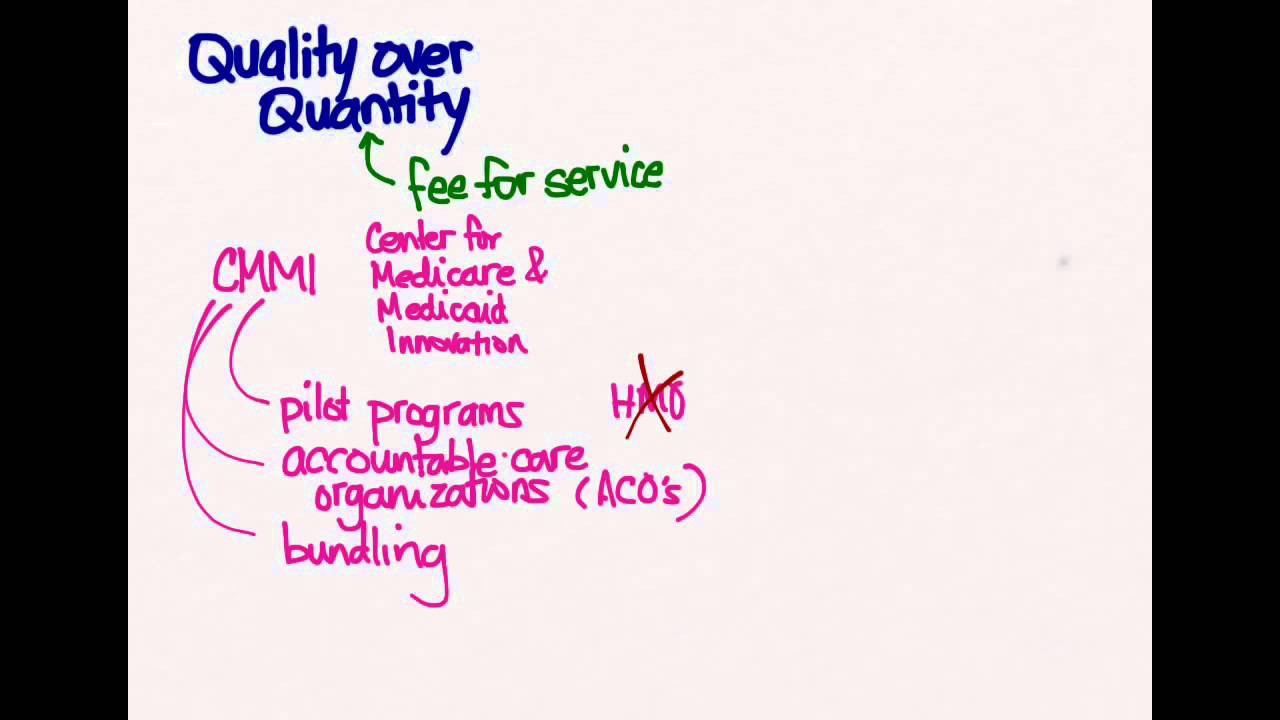 Quality over
Quantity
fee for service
CMMI
Center for
Medicare &
Medicaid
Innovation
pilot programs
HMO
accountable care
organizations (ACO's)
bundling